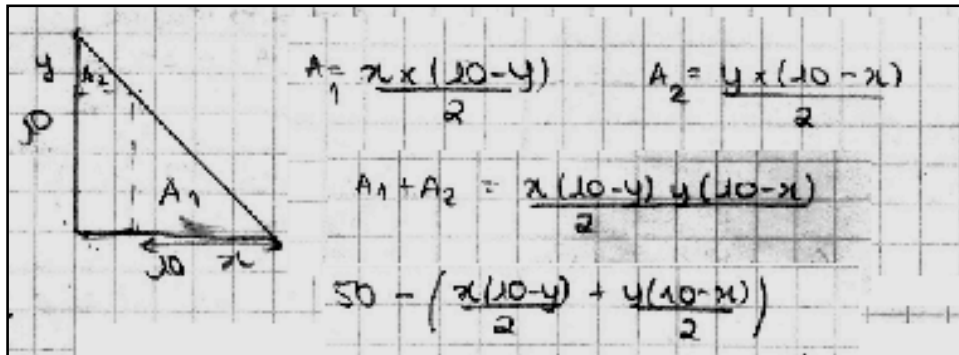 y
A₂
10
A₁
10 x
A₁ = x × (10-y) / 2    A₂ = y × (10-x) / 2
A₁ + A₂ = x(10-y) y(10-x) / 2
50 - ( x(10-y) / 2 + y(10-x) / 2 )